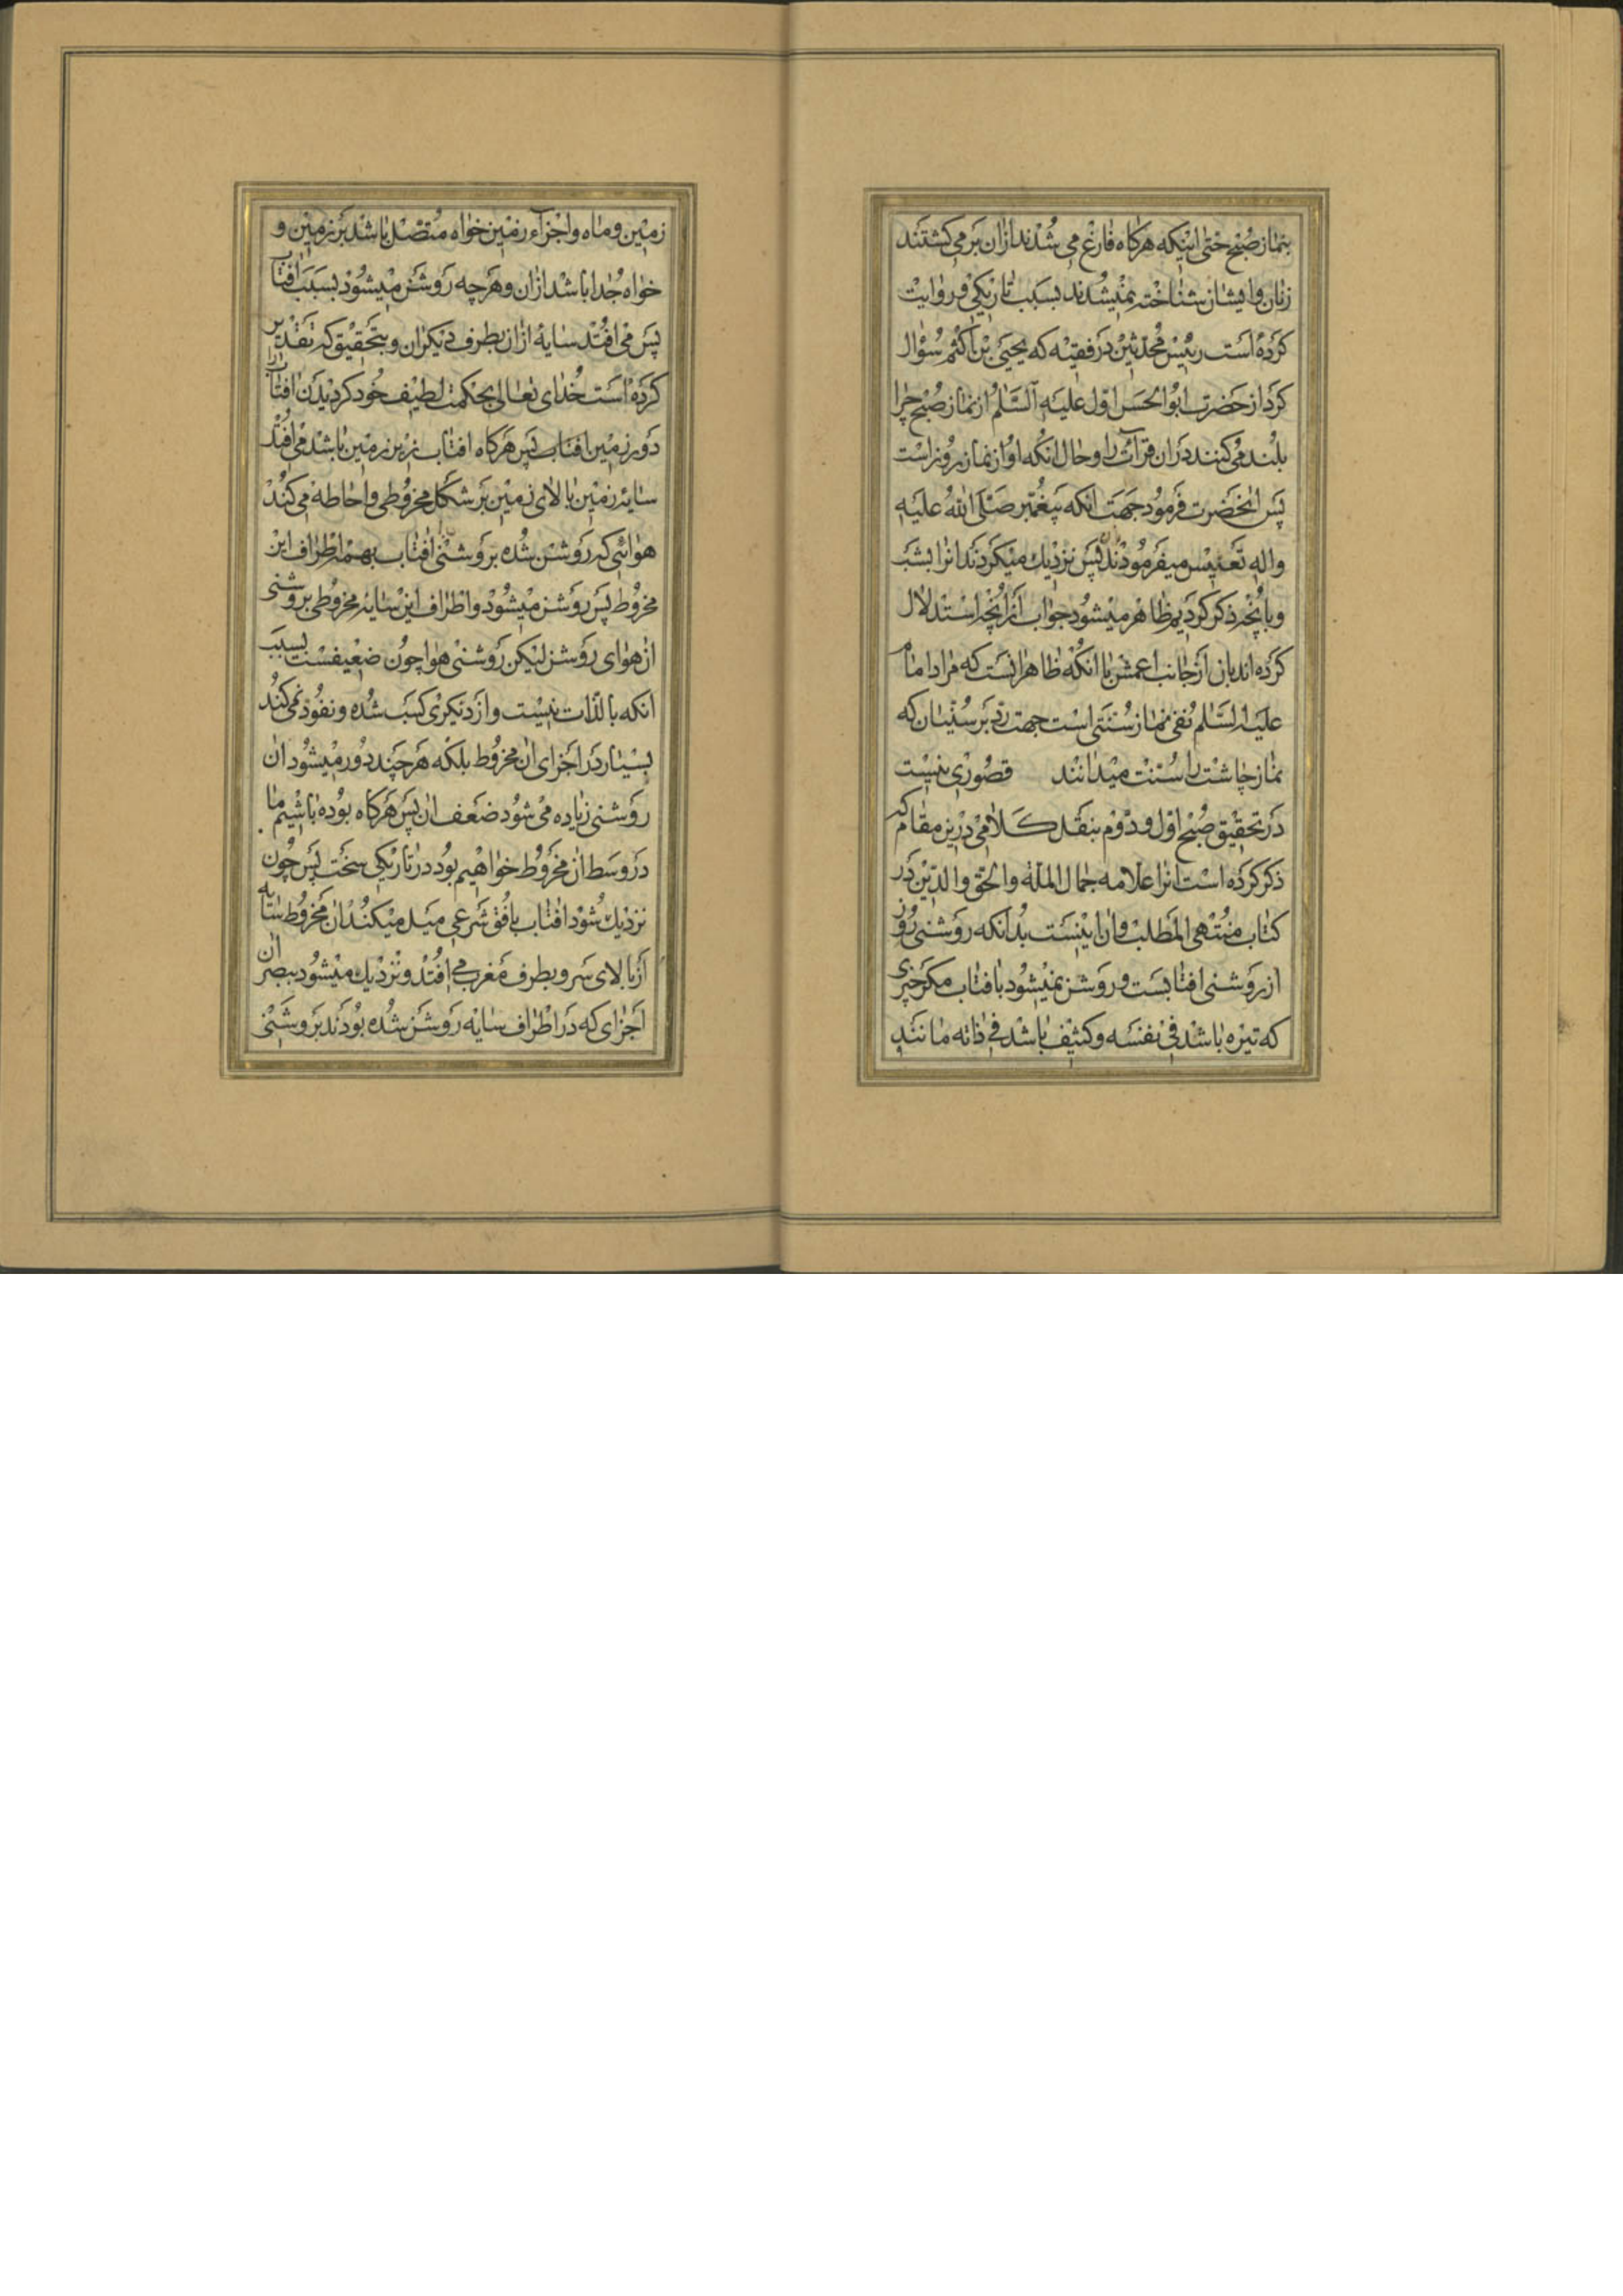 بنماز صبح حتی اینکه هرگاه فارغ می شدند ازان برمی کشتند
زنان وایشان شناخته نمیشدند بسبب تاریکی و روایت
کرده است رییس محدثین در فقیه که یحیی بن اکثم سؤال
کرد از حضرت ابوالحسن اول علیه السلام از نماز صبح چرا
بلند می کنند در ان قرائت را و حال انکه او از نماز روز است
پس انحضرت فرمود جهت انکه پیغمبر صلی الله علیه
واله تغلیس میفرمودند پس نزدیك میکردند انرا بشب
وبانچه ذکر کردیم ظاهر میشود جواب از انچه استدلال
کرده اند بان از جانب اعمش با انکه ظاهر انست که مراد امام
علیه السلام نفی نماز سنتی است جهت رد بر سنیان که
نماز چاشت را سنت میدانند قصوری نیست
در تحقیق صبح اول و دوم بنقل کلامی درین مقام که
ذکر کرده است انرا علامه جمال الملة والحق والدین در
کتاب منتهی المطلب وان اینست بدانکه روشنی روز
از روشنی افتابست و روشن نمیشود بافتاب مکر چیزی
که تیره باشد فی نفسه وکثیف باشد فی ذاته مانند
زمین و ماه و اجزاء زمین خواه متصل باشد بزمین و
خواه جدا باشد ازان وهرچه روشن میشود بسبب افتاب
پس می افتد سایهٔ ازان بطرف دیکران و بتحقیق که تقدیر
کرده است خدای تعالی بحکمت لطیف خود کردیدن افتاب را
دور زمین افتاب پس هرگاه افتاب زیر زمین باشد می افتد
سایه زمین بالای زمین بر شکل مخروطی واحاطه می کند
هوائی که روشن شده بروشنی افتاب بهمه اطراف این
مخروط پس روشن میشود واطراف این سایه مخروطی بروشنی
از هوای روشن لیکن روشنی هوا چون ضعیفست بسبب
انکه بالذات نیست و از دیکری کسب شده و نفوذ نمی کند
بسیار در اجزای ان مخروط بلکه هرچند دور میشود ان
روشنی زیاده می شود ضعف ان پس هرگاه بوده باشیم ما
در وسط ان مخروط خواهیم بود در تاریکی سخت پس چون
نزدیك شود افتاب بافق شرعی میل میکند ان مخروط سایه
از بالای سر و بطرف مغرب می افتد و نزدیك میشود ببصر ان
اجزای که در اطراف سایه روشن شده بودند بروشنی